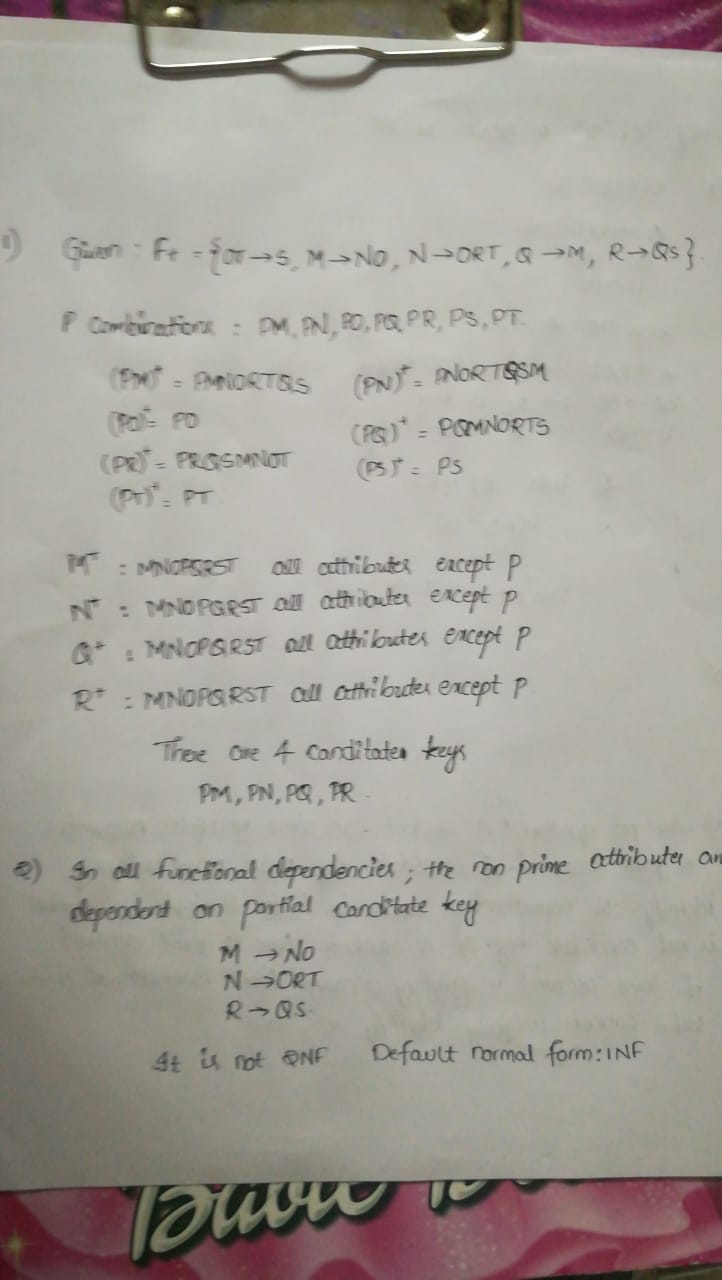 1) Given : F+ = {OT→S, M→NO, N→ORT, Q→M, R→QS}.
P Combinations : PM, PN, PO, PQ, PR, PS, PT.
(PM)+ = PMNORTQS (PN)+ = PNORTQSM
(PO)+ = PO (PQ)+ = PQMNORTS
(PR)+ = PRQSMNOT (PS)+ = PS
(PT)+ = PT
M+ : MNOPQRST all attributes except P
N+ : MNOPQRST all attributes except P
Q+ : MNOPQRST all attributes except P
R+ : MNOPQRST all attributes except P
There are 4 canditates keys
PM, PN, PQ, PR.
2) In all functional dependencies, the non prime attributes
dependent on partial canditate key
M → NO
N → ORT
R → QS.
It is not 2NF Default normal form: 1NF